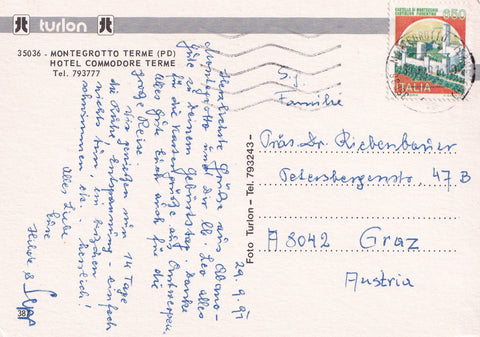 turlon
35036 - MONTEGROTTO TERME (PD)
HOTEL COMMODORE TERME
Tel. 793777
CASTELLO DI MONTECCHIO
CASTIGLION FIORENTINO
650
ITALIA
29.9.91
Allerherzlichste Grüße aus Abano-
Montegrotto und Dir, lb. Leo alles
Gute zu Deinem Geburtstag. Danke
für die Kartengrüße aus Antwerpen.
Alles Gute Euch auch für die
große Reise
Wir genießen nun 14 Tage
die Ruhe, Entspannung - einfach
nichts tun, im bißchen
schwimmen etc. - herrlich!
Alles Liebe
Eure
Hilde & Sepp
Foto Turlon - Tel. 793243 -
Familie
Präs. Dr. Riebenbauer
Petersbergenstr. 47 B
A 8042 Graz
Austria
38